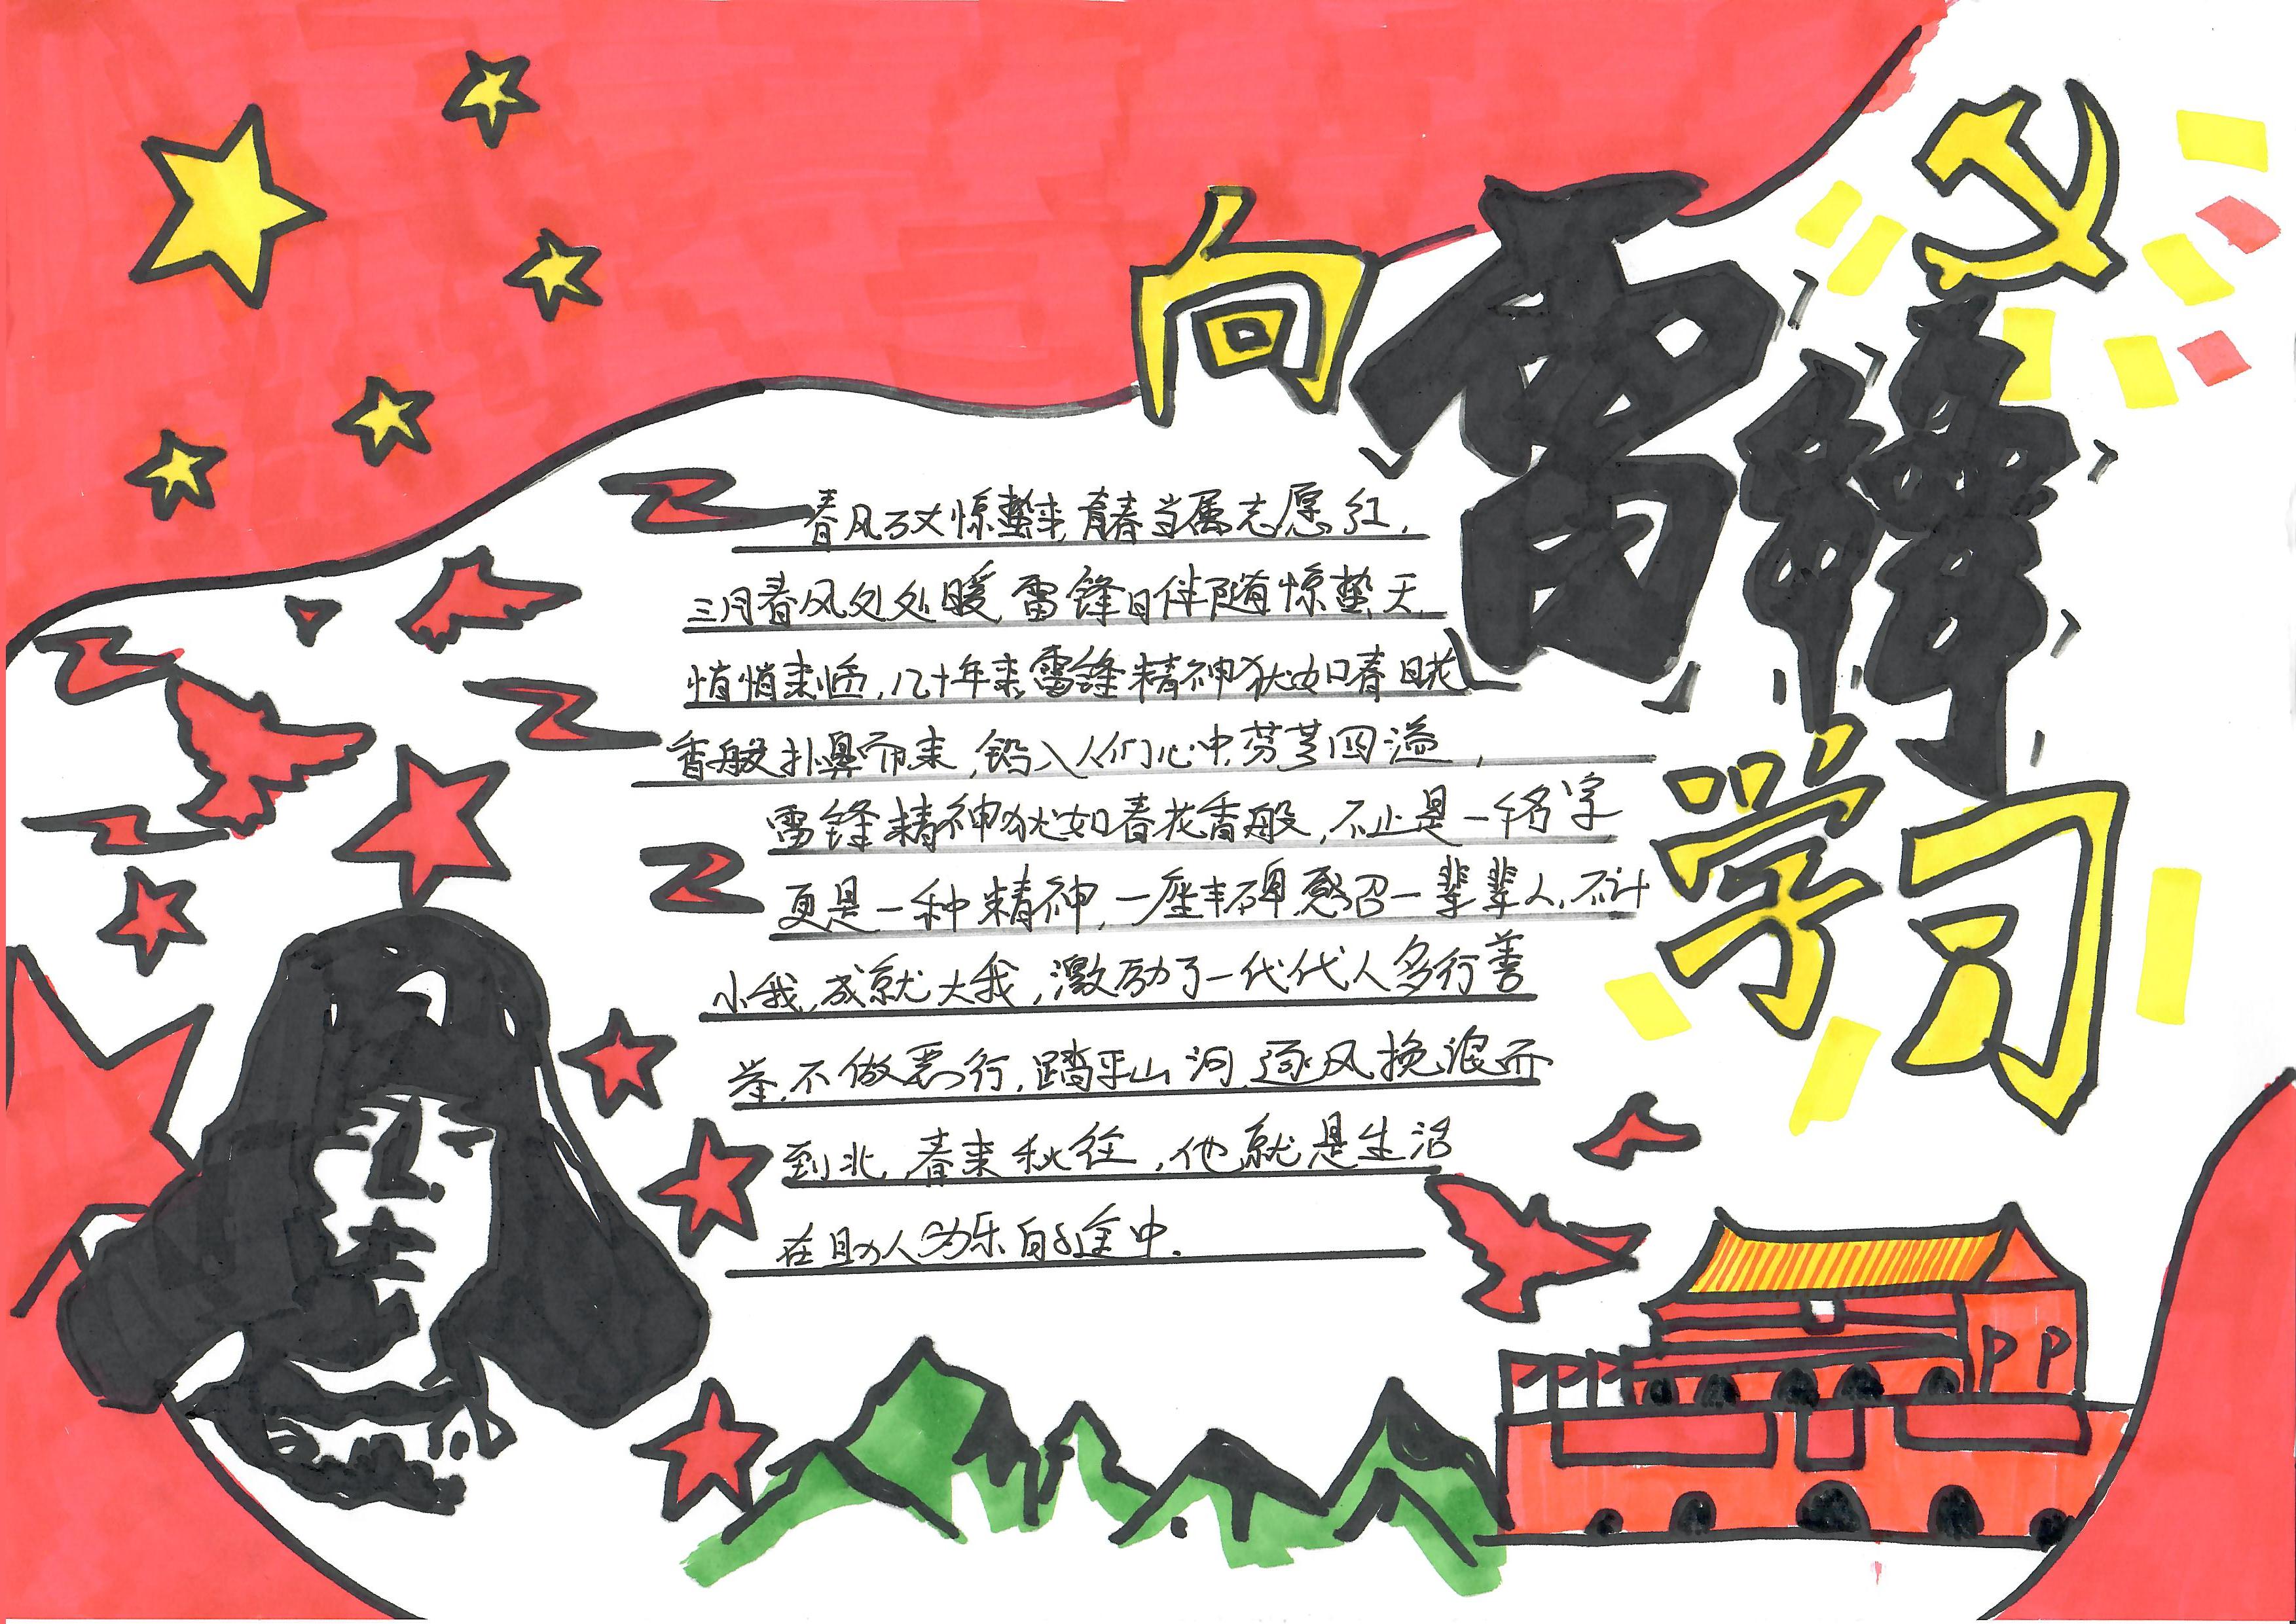 向雷锋学习
春风又惊蛰来,青春当属志愿红,
三月春风处处暖,雷锋日伴随惊蛰天
悄悄来临,几十年来雷锋精神犹如春日花
香般扑鼻而来,铅入人们心中,芬芳四溢,
雷锋精神犹如春花香般,不止是一个名字
更是一种精神,一座丰碑,感召一辈辈人,不计
小我,成就大我,激励了一代代人多行善
举,不做恶行,踏平山河,逐风挽浪而
到北,春来秋往,他就是生活
在助人为乐的途中.